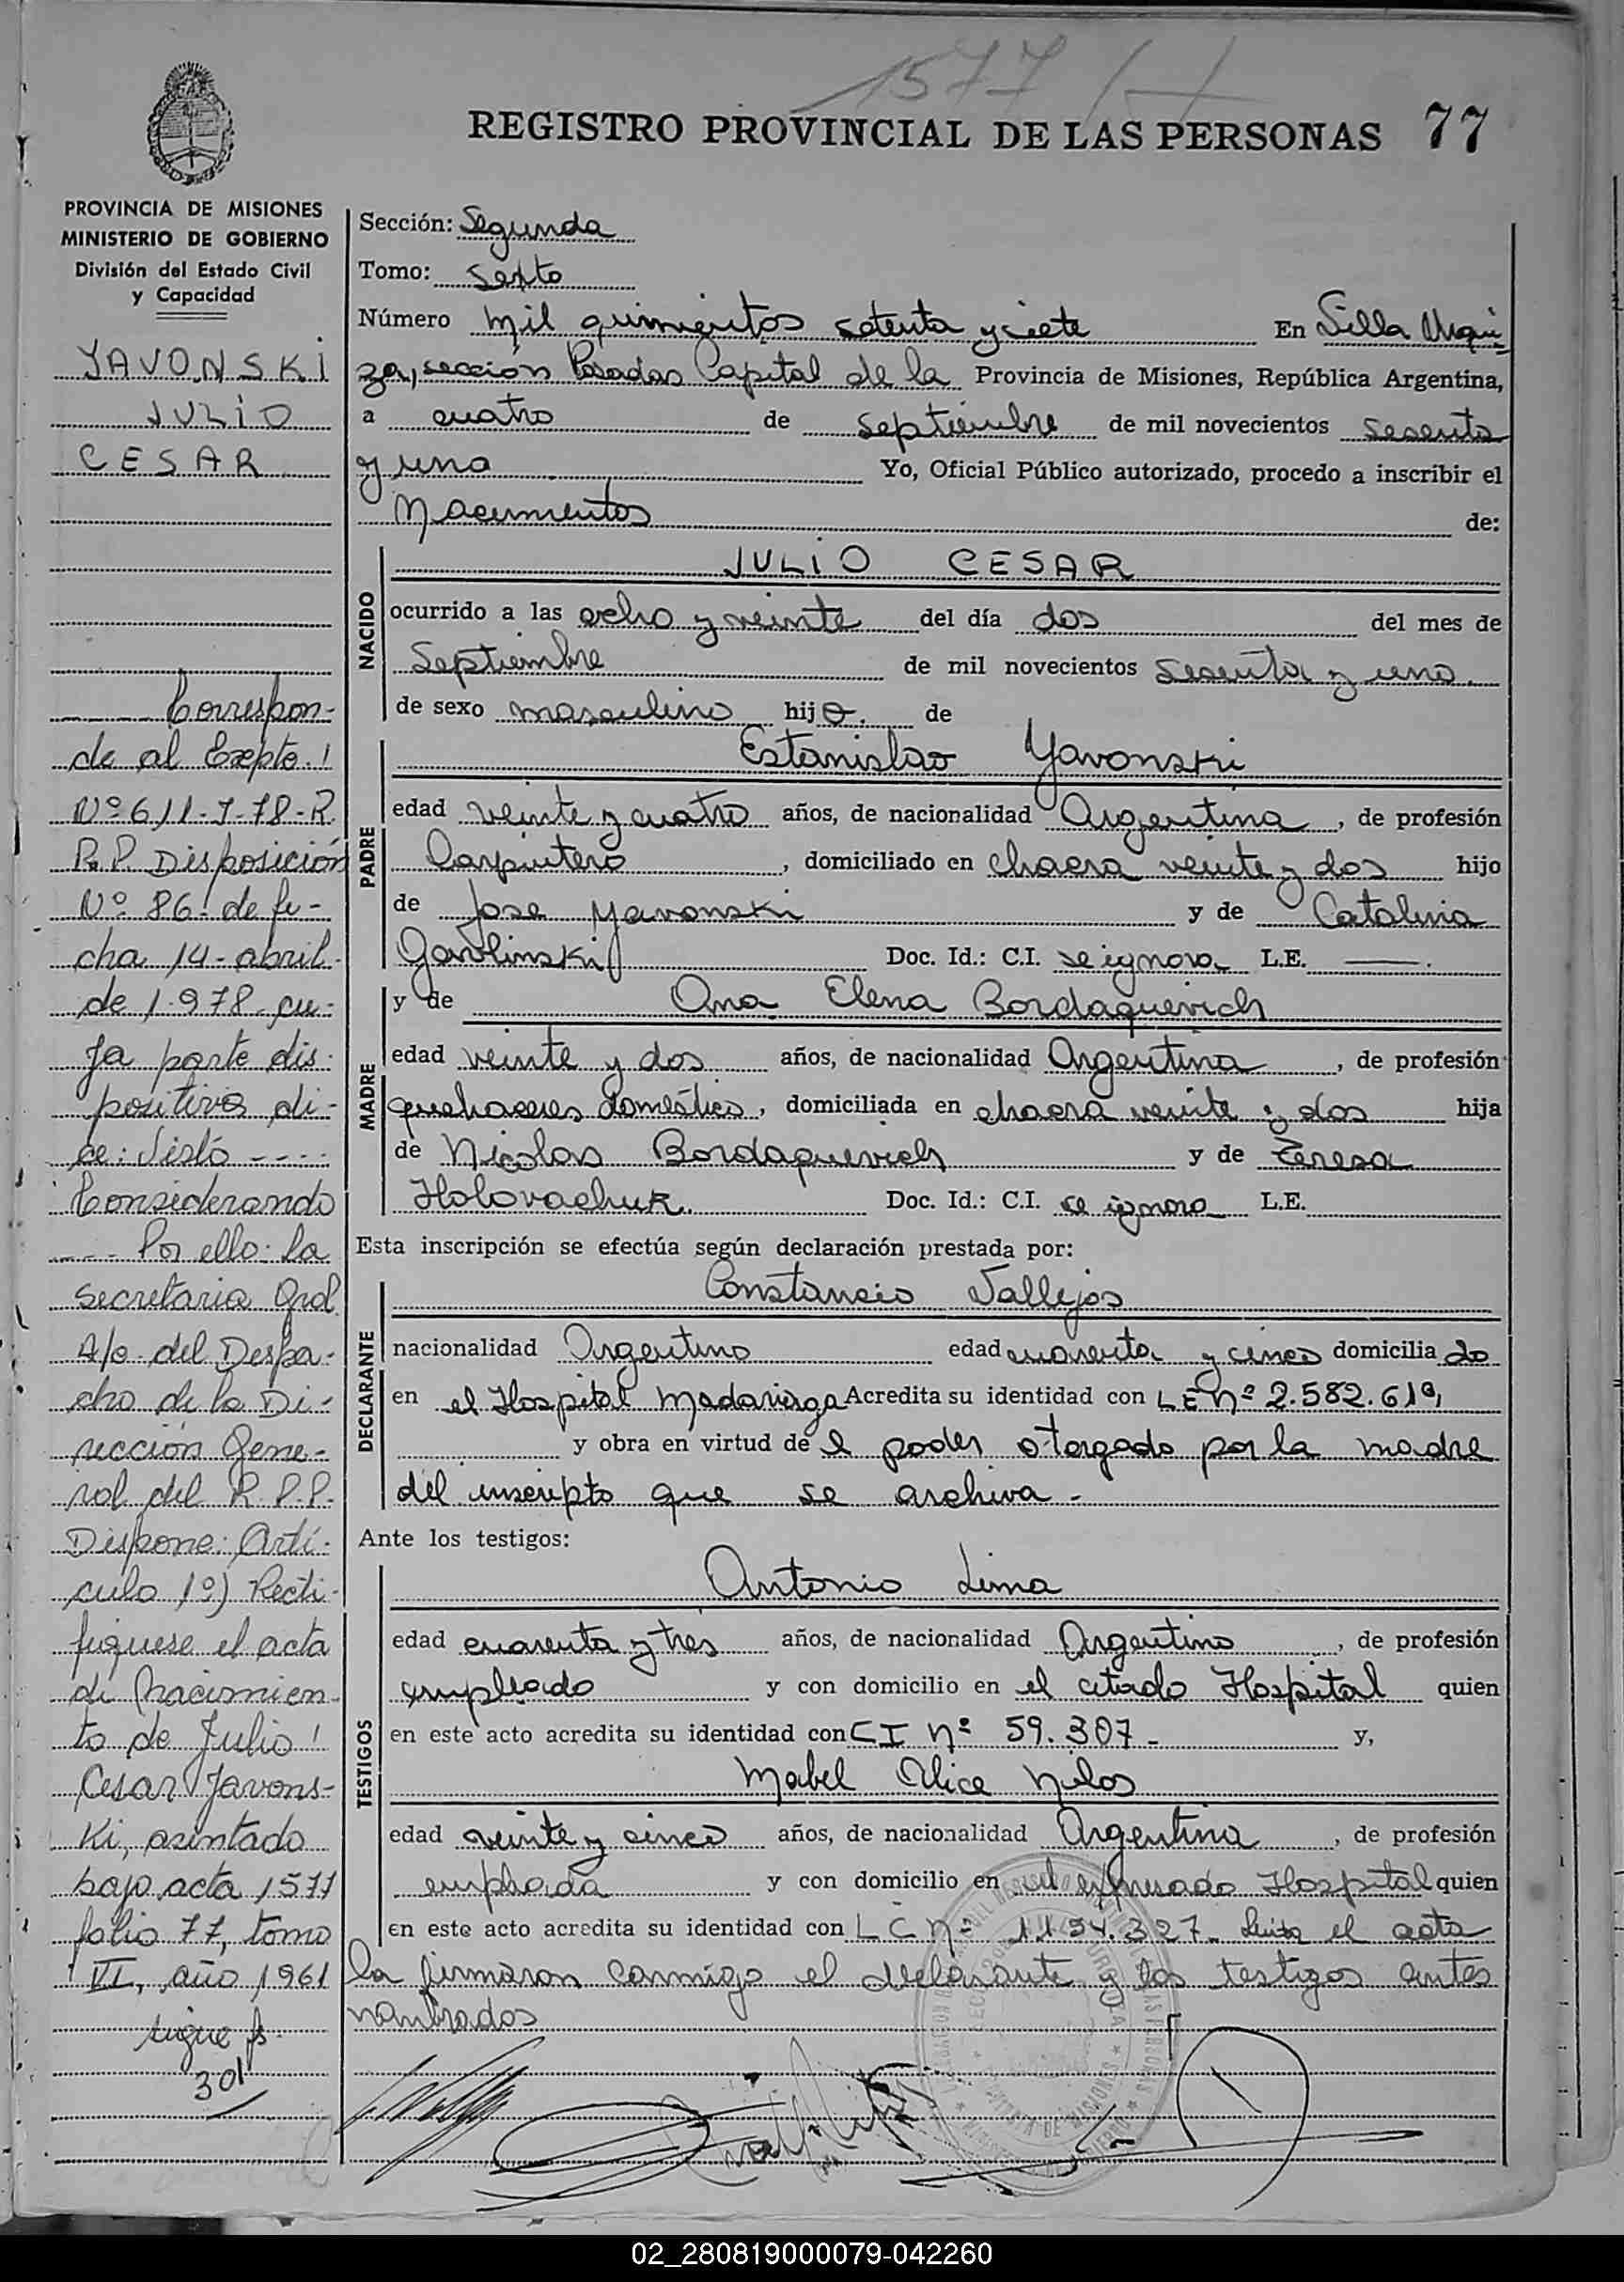 1577
REGISTRO PROVINCIAL DE LAS PERSONAS 77
PROVINCIA DE MISIONES
MINISTERIO DE GOBIERNO
División del Estado Civil
y Capacidad
YAVONSKI
JULIO
CESAR
Correspon-
de al Expte.
Nº 611-J-78-R.
R.P. Disposición
Nº 86 de fe-
cha 14-abril-
de 1.978 cu-
ya parte dis-
positiva di-
ce: Visto ----
Considerando
--- Por ello: La
Secretaria Gral.
A/c. del Despa-
cho de la Di-
rección Gene-
ral del R.P.P.
Dispone: Artí-
culo 1º) Recti-
fiquese el acta
de Nacimien-
to de Julio
Cesar Yavons-
Ki, asentado
bajo acta 1577
folio 77, tomo
VI, año 1961
sigue fs
301
Sección: Segunda
Tomo: Sexto
Número mil quinientos setenta y siete En Villa Urqui-
za, sección Posadas Capital de la Provincia de Misiones, República Argentina,
a cuatro de septiembre de mil novecientos sesenta
y uno Yo, Oficial Público autorizado, procedo a inscribir el
Nacimientos de:
NACIDO
JULIO CESAR
ocurrido a las ocho y veinte del día dos del mes de
Septiembre de mil novecientos sesenta y uno.
de sexo masculino hijo. de
PADRE
Estanislao Yavonski
edad veinte y cuatro años, de nacionalidad Argentina, de profesión
Carpintero, domiciliado en chacra veinte y dos hijo
de Jose Yavonski y de Catalina
Gavlinski Doc. Id.: C.I. se ignora L.E. ——.
MADRE
y de Ana Elena Bordaquevich
edad veinte y dos años, de nacionalidad Argentina, de profesión
quehaceres domésticos, domiciliada en chacra veinte y dos hija
de Nicolas Bordaquevich y de Teresa
Holovachuk. Doc. Id.: C.I. se ignora L.E.
Esta inscripción se efectúa según declaración prestada por:
DECLARANTE
Constancio Vallejos
nacionalidad Argentino edad cuarenta y cinco domiciliado
en el Hospital Madariaga Acredita su identidad con LE Nº 2.582.619,
y obra en virtud del poder otorgado por la madre
del inscripto que se archiva -
Ante los testigos:
TESTIGOS
Antonio Lima
edad cuarenta y tres años, de nacionalidad Argentino, de profesión
empleado y con domicilio en el citado Hospital quien
en este acto acredita su identidad con CI Nº 59.307- y,
Mabel Alice
edad veinte y cinco años, de nacionalidad Argentina, de profesión
empleada y con domicilio en el expresado Hospital quien
en este acto acredita su identidad con LC Nº 1.154.327. el acta
la firmaron conmigo el declarante y los testigos antes
nombrados
02_280819000079-042260